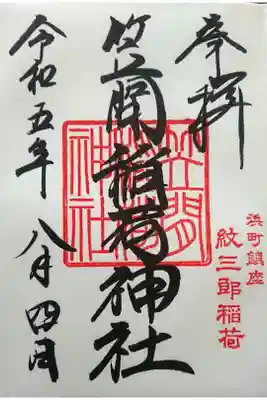 奉拝
笠間稲荷神社
笠間
稲荷
神社
令和五年
八月四日
浜町鎮座
紋三郎稲荷